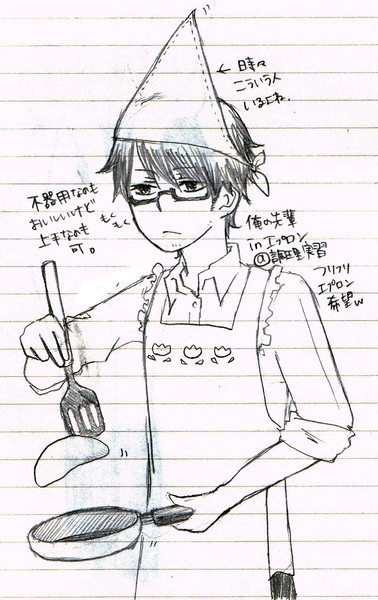 時々
こういう人
いるよね。
不器用なのも
おいしいけど
上手なのも
可。
もくもく
俺の先輩
inエプロン
@調理実習
フリフリ
エプロン
希望w